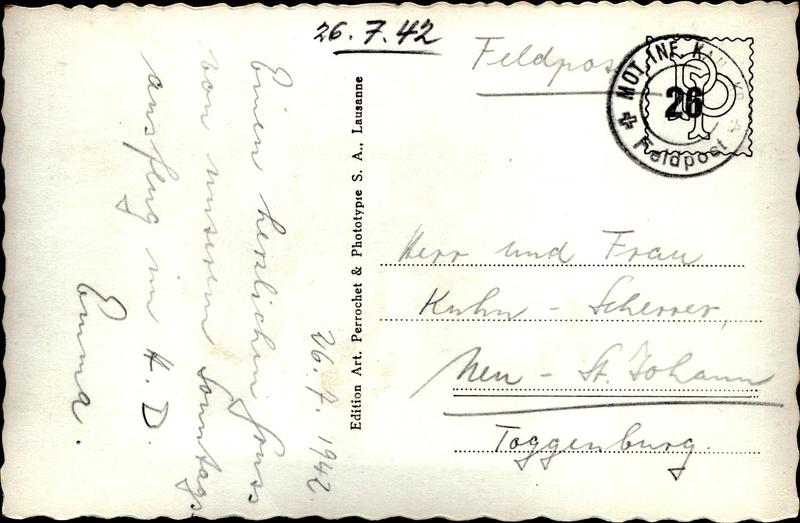 26. 7. 42
Feldpost
MOT. INF. K
26
Feldpost
26. 7. 1942.
Einen herzlichen Gruss
von unserem Sonntags-
ausflug im H. D.
Emma.
Edition Art. Perrochet & Phototypie S. A., Lausanne
Herr und Frau
Kuhn - Scherrer,
Neu - St. Johann
Toggenburg.